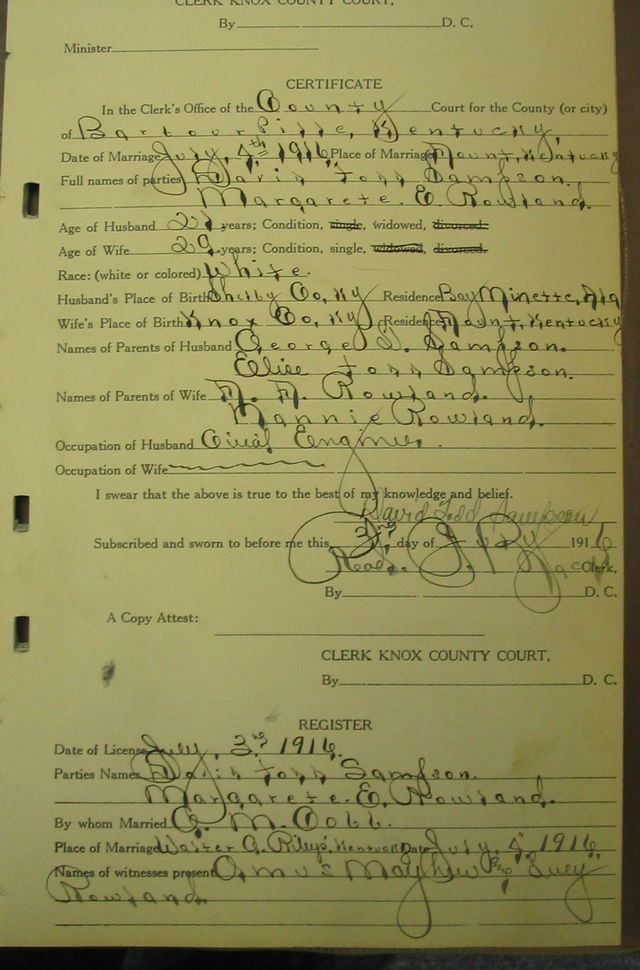 CLERK KNOX COUNTY COURT.
By D. C.
Minister
CERTIFICATE
In the Clerk's Office of the County Court for the County (or city)
of Barbourville, Kentucky,
Date of Marriage July, 4th 1916 Place of Marriage Kentucky
Full names of parties Sampson.
Margarete. E. Rowland.
Age of Husband years; Condition, single, widowed, divorced.
Age of Wife 29 years; Condition, single, widowed, divorced.
Race: (white or colored) White.
Husband's Place of Birth Shelby Co, Ky Residence Bay Minette, Ala
Wife's Place of Birth Knox Co, Ky Residence Kentucky
Names of Parents of Husband George Sampson.
Elise Todd Sampson.
Names of Parents of Wife Rowland.
Nannie Rowland.
Occupation of Husband Civil Engineer.
Occupation of Wife
I swear that the above is true to the best of my knowledge and belief.
David Todd Sampson
Subscribed and sworn to before me this 3rd, day of July 1916
Read. Clerk,
By D. C.
A Copy Attest:
CLERK KNOX COUNTY COURT.
By D. C.
REGISTER
Date of License July, 3rd 1916.
Parties Names Sampson.
Margarete. E. Rowland.
By whom Married M. Cobb.
Place of Marriage Walter G. Riley's, Kentucky Date July, 1916
Names of witnesses present Mayhew Lucy
Rowland.